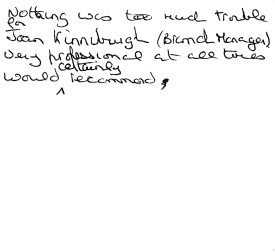 Nothing was too much trouble
for
Joan Kinniburgh (Branch Manager)
very professional at all times
certainly
would recommend,